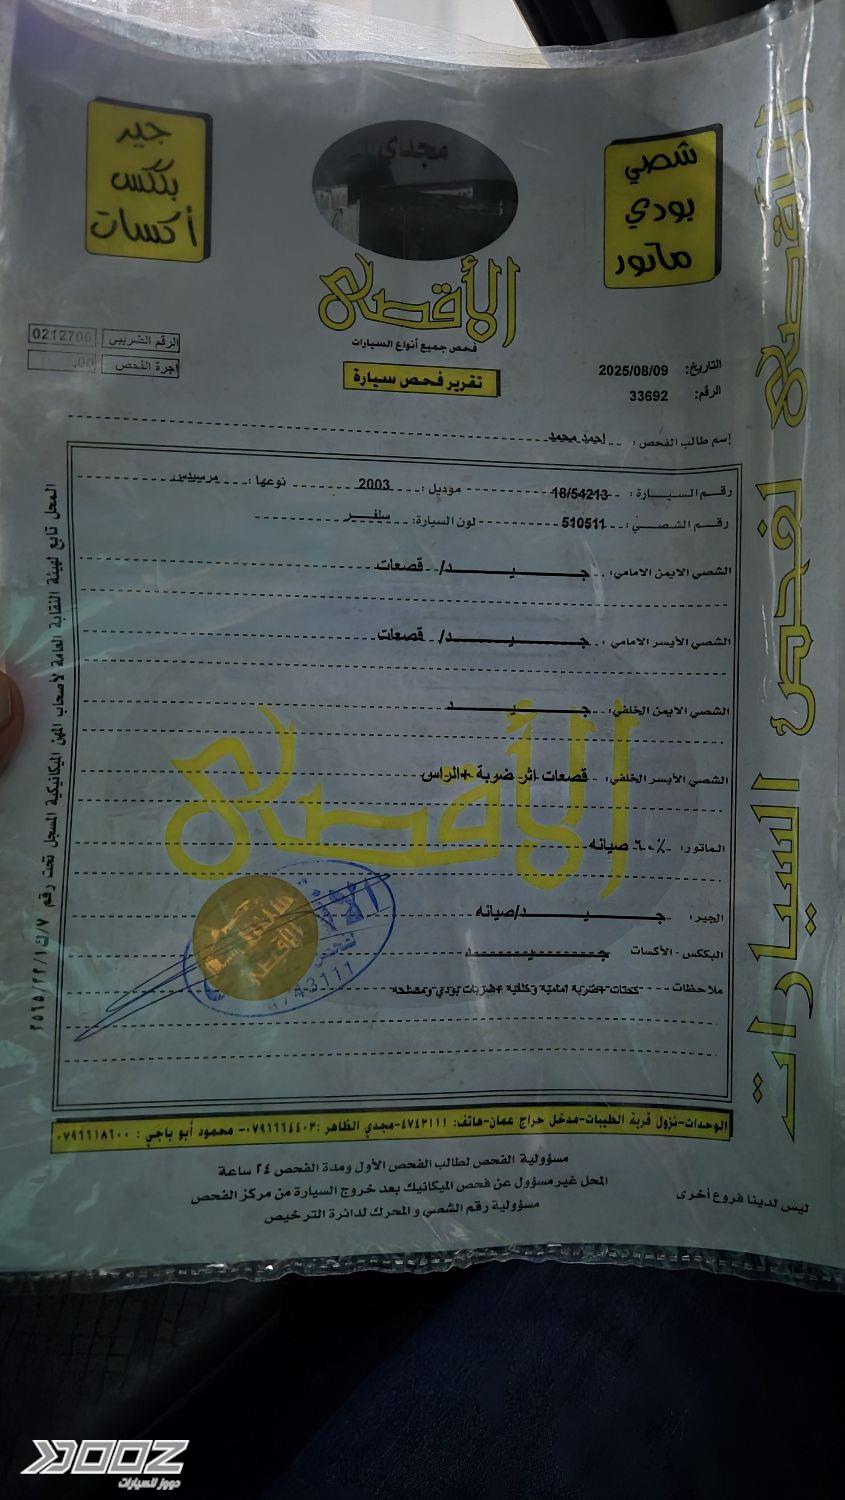 جير
بكس
أكسات
مجدي
شصي
بودي
ماتور
الأقصى
فحص جميع أنواع السيارات
تقرير فحص سيارة
الرقم الضريبي 0212706
اجرة الفحص .00
التاريخ: 2025/08/09
الرقم: 33692
إسم طالب الفحص: احمد محمد
رقم السيارة: 18/54213 موديل: 2003 نوعها: مرسيدس
رقم الشصي: 510511 لون السيارة: سلفر
الشصي الايمن الامامي: جيد/ قصعات
الشصي الأيسر الامامي: جيد/ قصعات
الشصي الايمن الخلفي: جيد
الشصي الأيسر الخلفي: قصعات اثر ضربة +الراس
الماتور: ٦٠٪ صيانه
الجير: جيد/صيانه
البكس - الأكسات جيد
ملاحظات كحتات+ضربة امامية وخلفية +ضربات بودي ومصلحه
الأقصى
4743111
الوحدات-نزول قرية الطيبات-مدخل حراج عمان-هاتف: ٤٧٤٣١١١-مجدي الظاهر: ٠٧٩٦٦٦٤٤٠٣- محمود أبو باجي: ٠٧٩٦٦١٨٦٠٠
مسؤولية الفحص لطالب الفحص الأول ومدة الفحص ٢٤ ساعة
المحل غير مسؤول عن فحص الميكانيك بعد خروج السيارة من مركز الفحص
مسؤولية رقم الشصي و المحرك لدائرة الترخيص
ليس لدينا فروع أخرى
المحل تابع لهيئة النقابة العامة لأصحاب المهن الميكانيكية المسجل تحت رقم ٧/ك/٢٢/١/٢٥٦٥
الأقصى لفحص السيارات
DOOZ
دووز للسيارات